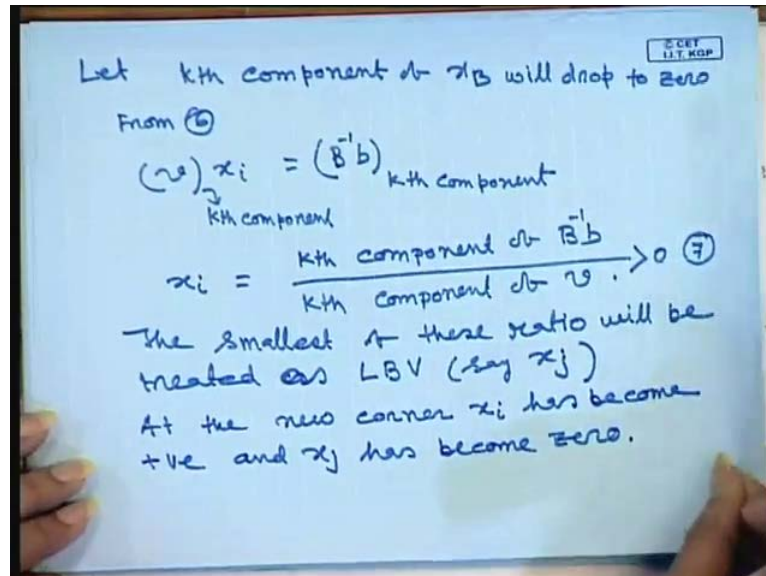 © CET
I.I.T. KGP
Let kth component of x_B will drop to zero
From ⑥
(v) x_i = (B^{-1}b) kth component
kth component
x_i = kth component of B^{-1}b / kth component of v. > 0 ⑦
The smallest of these ratio will be
treated as LBV (say x_j)
At the new corner x_i has become
+ve and x_j has become zero.